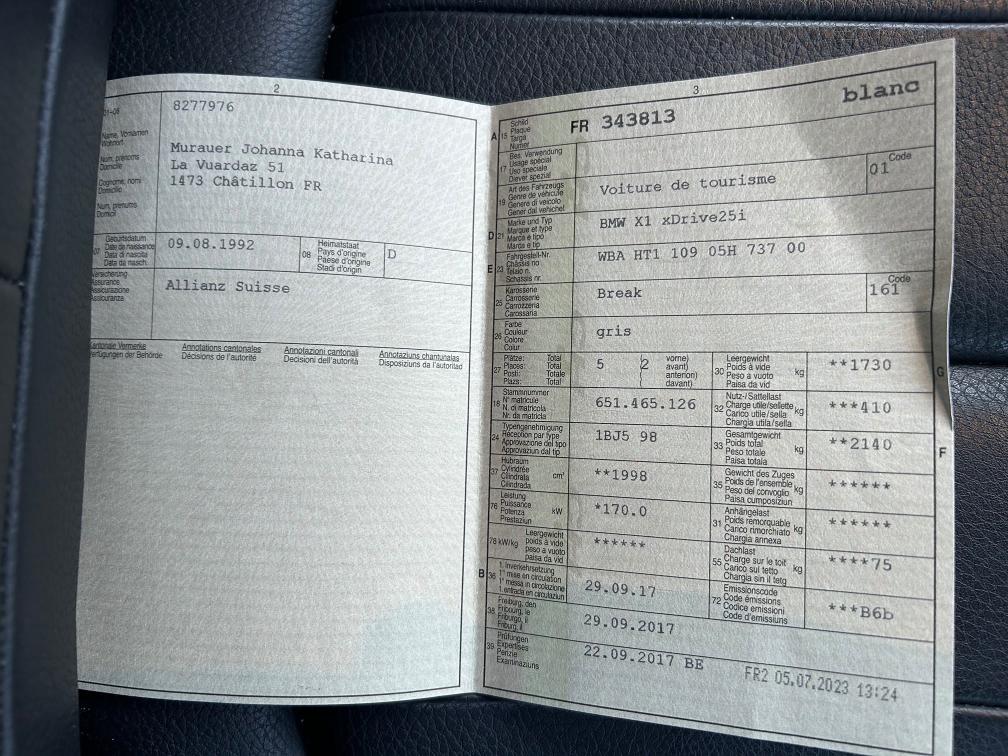 2
01-06
8277976
Name, Vornamen
Wohnort
Nom, prénoms
Domicile
Cognome, nomi
Domicilio
Num, prenums
Domicil
Murauer Johanna Katharina
La Vuardaz 51
1473 Châtillon FR
07
Geburtsdatum
Date de naissance
Data di nascita
Data da nasch.
09.08.1992
08
Heimatstaat
Pays d'origine
Paese d'origine
Stadi d'origin
D
Versicherung
Assurance
Assicurazione
Assicuranza
Allianz Suisse
Kantonale Vermerke
Verfügungen der Behörde
Annotations cantonales
Décisions de l'autorité
Annotazioni cantonali
Decisioni dell'autorità
Annotaziuns chantunalas
Disposiziuns da l'autoritad
3
blanc
A 15
Schild
Plaque
Targa
Numer
FR 343813
17
Bes. Verwendung
Usage spécial
Uso speciale
Diever spezial
19
Art des Fahrzeugs
Genre de véhicule
Genere di veicolo
Gener dal vehichel
Voiture de tourisme
Code
01
D 21
Marke und Typ
Marque et type
Marca e tipo
Marca e tip
BMW X1 xDrive25i
E 23
Fahrgestell-Nr.
Châssis no
Telaio n.
Schassis nr.
WBA HT1 109 05H 737 00
25
Karosserie
Carrosserie
Carrozzeria
Carossaria
Break
Code
161
26
Farbe
Couleur
Colore
Colur
gris
27
Plätze: Total
Places: Total
Posti: Totale
Plazs: Total
5 (2
vorne)
avant)
anteriori)
davant)
30
Leergewicht
Poids à vide
Peso a vuoto
Paisa da vid
kg
**1730
G
18
Stammnummer
N° matricule
N. di matricola
Nr. da matricla
651.465.126
32
Nutz-/Sattellast
Charge utile/sellette
Carico utile/sella
Chargia utila/sella
kg
***410
24
Typengenehmigung
Réception par type
Approvazione del tipo
Approvaziun dal tip
1BJ5 98
33
Gesamtgewicht
Poids total
Peso totale
Paisa totala
kg
**2140
F
37
Hubraum
Cylindrée
Cilindrata
Cilindrada
cm³
**1998
35
Gewicht des Zuges
Poids de l'ensemble
Peso del convoglio
Paisa cumposiziun
kg
******
76
Leistung
Puissance
Potenza
Prestaziun
kW
*170.0
31
Anhängelast
Poids remorquable
Carico rimorchiato
Chargia annexa
kg
******
78 kW/kg
Leergewicht
poids à vide
peso a vuoto
paisa da vid
******
55
Dachlast
Charge sur le toit
Carico sul tetto
Chargia sin il tetg
kg
****75
B 36
1. Inverkehrsetzung
1re mise en circulation
1a messa in circolazione
1. entrada en circulaziun
29.09.17
72
Emissionscode
Code émissions
Codice emissioni
Code d'emissiuns
***B6b
38
Freiburg, den
Fribourg, le
Friburgo, il
Friburg, il
29.09.2017
39
Prüfungen
Expertises
Perizie
Examinaziuns
22.09.2017 BE
FR2 05.07.2023 13:24